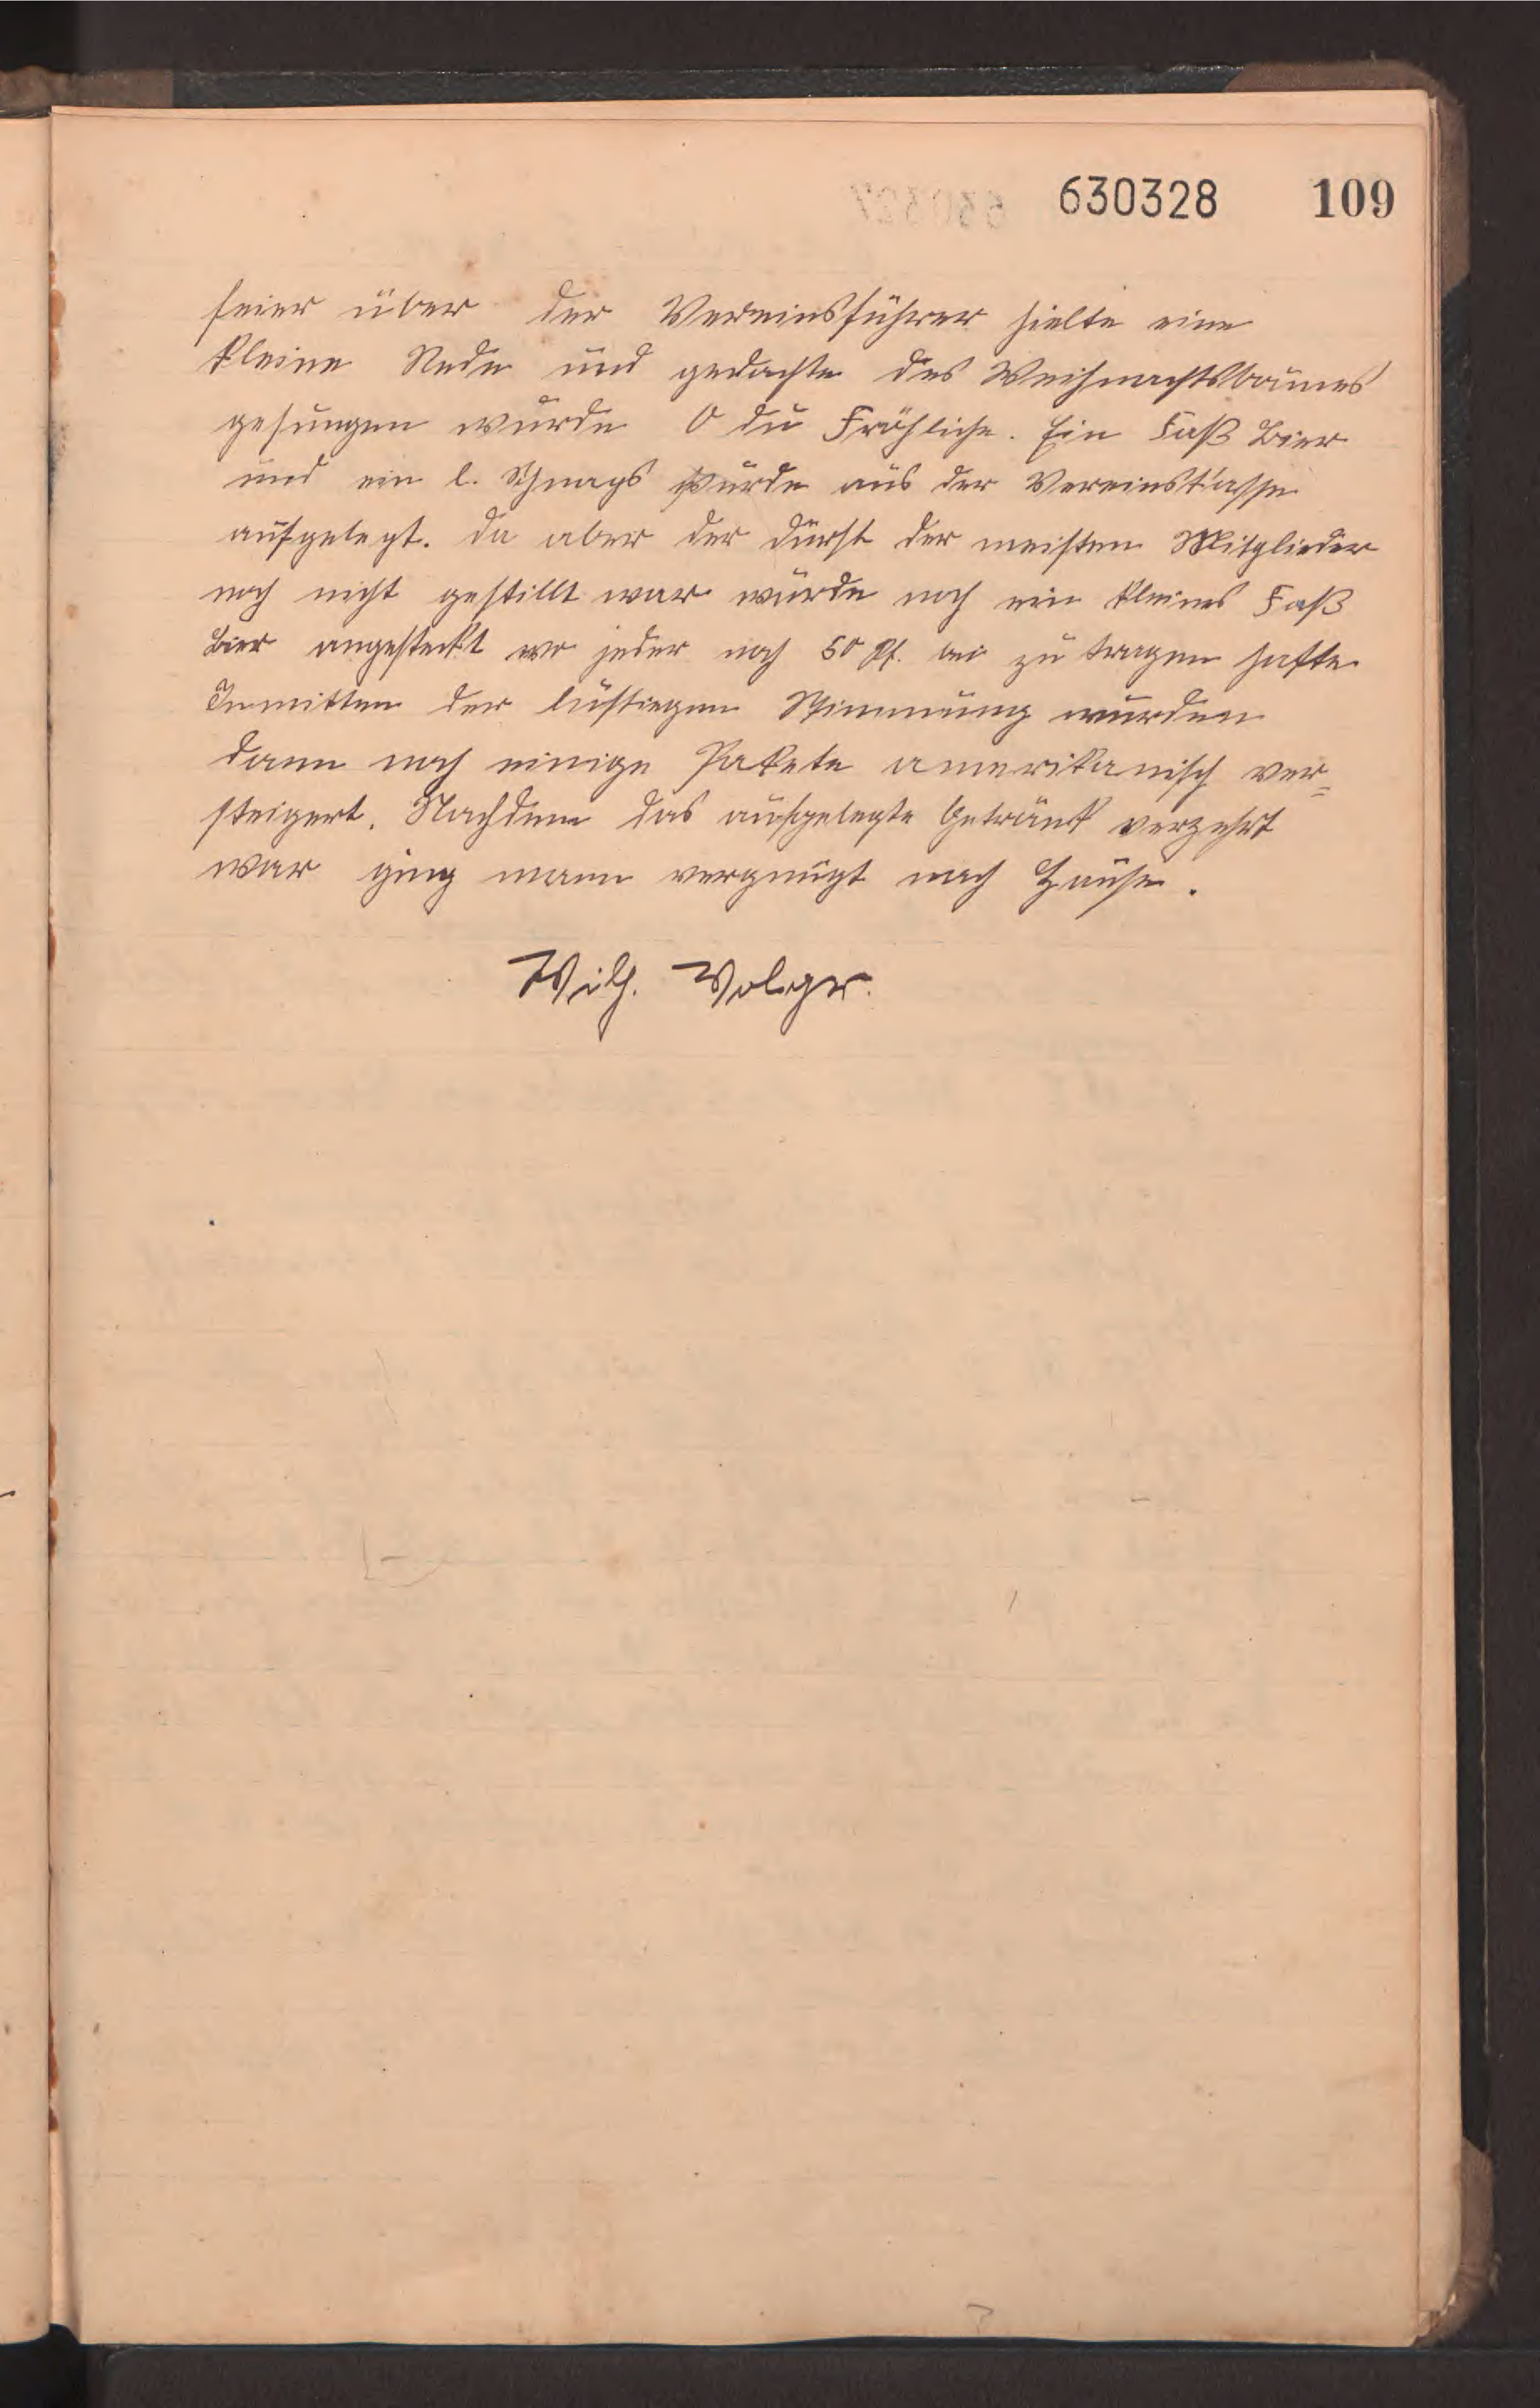 630328 109
feier über der Vereinsführer hielte eine
kleine Rede und gedachte des Weihnachtsbaumes
gesungen wurde O du Fröhliche. Ein Faß Bier
und ein l. Schnaps wurde aus der Vereinskasse
aufgelegt. Da aber der Durst der meisten Mitglieder
noch nicht gestillt war wurde noch ein kleines Faß
Bier angesteckt wo jeder noch 50 Pf. bei zu tragen hatte
Inmitten der lustiegen Stimmung wurden
dann noch einige Pakete amerikanisch ver=
steigert. Nachdem das aufgelegte Getränk verzehrt
war ging mann vergnügt nach Hause.
Wilh. Volger.